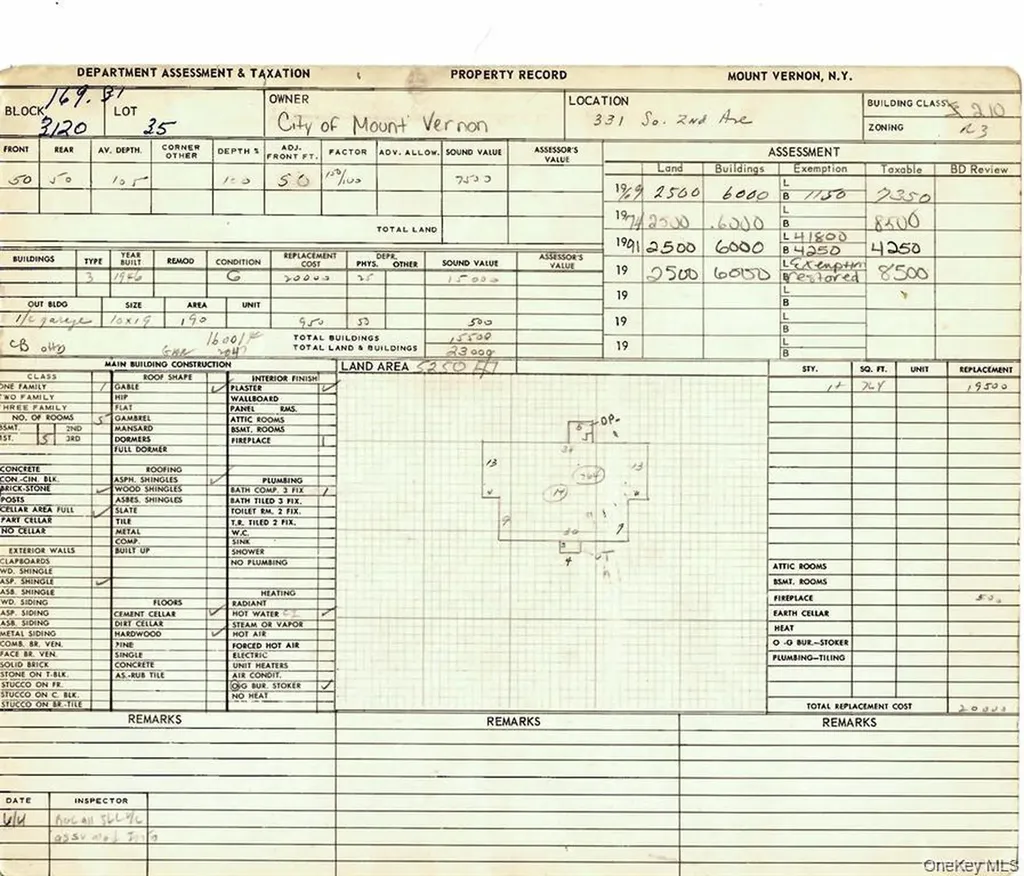 DEPARTMENT ASSESSMENT & TAXATION PROPERTY RECORD MOUNT VERNON, N.Y.
BLOCK 169.31 3120 LOT 35 OWNER City of Mount Vernon LOCATION 331 So. 2nd Ave BUILDING CLASS 210
ZONING R3
FRONT REAR AV. DEPTH. CORNER OTHER DEPTH % ADJ. FRONT FT. FACTOR ADV. ALLOW. SOUND VALUE ASSESSOR'S VALUE
50 50 105 100 50 150/100 7500
TOTAL LAND
ASSESSMENT
Land Buildings Exemption Taxable BD Review
1969 2500 6000 L B 1150 7350
1974 2500 6000 L B 8500
1991 2500 6000 L 41800 B 4250 4250
19 2500 6000 L B Exemption restored 8500
19 L B
19 L B
19 L B
BUILDINGS TYPE YEAR BUILT REMOD CONDITION REPLACEMENT COST DEPR. PHYS. OTHER SOUND VALUE ASSESSOR'S VALUE
3 1946 G 20000 25 15000
OUT BLDG SIZE AREA UNIT
1/c garage 10x19 190 950 50 500
TOTAL BUILDINGS 15500
TOTAL LAND & BUILDINGS 23000
CB
MAIN BUILDING CONSTRUCTION
CLASS
ONE FAMILY 1
TWO FAMILY
THREE FAMILY
NO. OF ROOMS 5
BSMT. 2ND
1ST. 5 3RD
CONCRETE
CON.-CIN. BLK.
BRICK-STONE
POSTS
CELLAR AREA FULL
PART CELLAR
NO CELLAR
EXTERIOR WALLS
CLAPBOARDS
WD. SHINGLE
ASP. SHINGLE
ASB. SHINGLE
WD. SIDING
ASP. SIDING
ASB. SIDING
METAL SIDING
COMB. BR. VEN.
FACE BR. VEN.
SOLID BRICK
STONE ON T-BLK.
STUCCO ON FR.
STUCCO ON C. BLK.
STUCCO ON BR.-TILE
ROOF SHAPE
GABLE
HIP
FLAT
GAMBREL
MANSARD
DORMERS
FULL DORMER
ROOFING
ASPH. SHINGLES
WOOD SHINGLES
ASBES. SHINGLES
SLATE
TILE
METAL
COMP.
BUILT UP
FLOORS
CEMENT CELLAR
DIRT CELLAR
HARDWOOD
PINE
SINGLE
CONCRETE
AS.-RUB TILE
INTERIOR FINISH
PLASTER
WALLBOARD
PANEL RMS.
ATTIC ROOMS
BSMT. ROOMS
FIREPLACE 1
PLUMBING
BATH COMP. 3 FIX. 1
BATH TILED 3 FIX.
TOILET RM. 2 FIX.
T.R. TILED 2 FIX.
W.C.
SINK
SHOWER
NO PLUMBING
HEATING
RADIANT
HOT WATER CI
STEAM OR VAPOR
HOT AIR
FORCED HOT AIR
ELECTRIC
UNIT HEATERS
AIR CONDIT.
O-G BUR. STOKER
NO HEAT
LAND AREA 5250
OP
13
13
764
9
7
30
4
STY. SQ. FT. UNIT REPLACEMENT
1+ 764 19500
ATTIC ROOMS
BSMT. ROOMS
FIREPLACE 500
EARTH CELLAR
HEAT
O -G BUR.-STOKER
PLUMBING-TILING
TOTAL REPLACEMENT COST 20000
REMARKS REMARKS REMARKS
DATE INSPECTOR
OneKey MLS